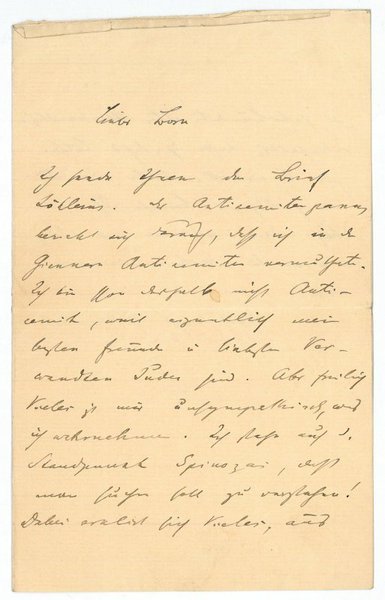 Lieber Born
Ich sende Ihnen den Brief
Der Antisemitenpassus
bezieht sich darauf, daß ich in den
Gießnern Antisemiten vermuthete.
Ich bin schon deshalb nicht Anti-
semit, weil eigentlich meine
besten Freunde u liebsten Ver-
wandten Juden sind. Aber freilich
Vieles ist mir unsympathisch, was
ich wahrnehme. Ich stehe auf d.
Standpunkt Spinozas, daß
man suchen soll zu verstehen!
Dabei erklärt sich Vieles, aus